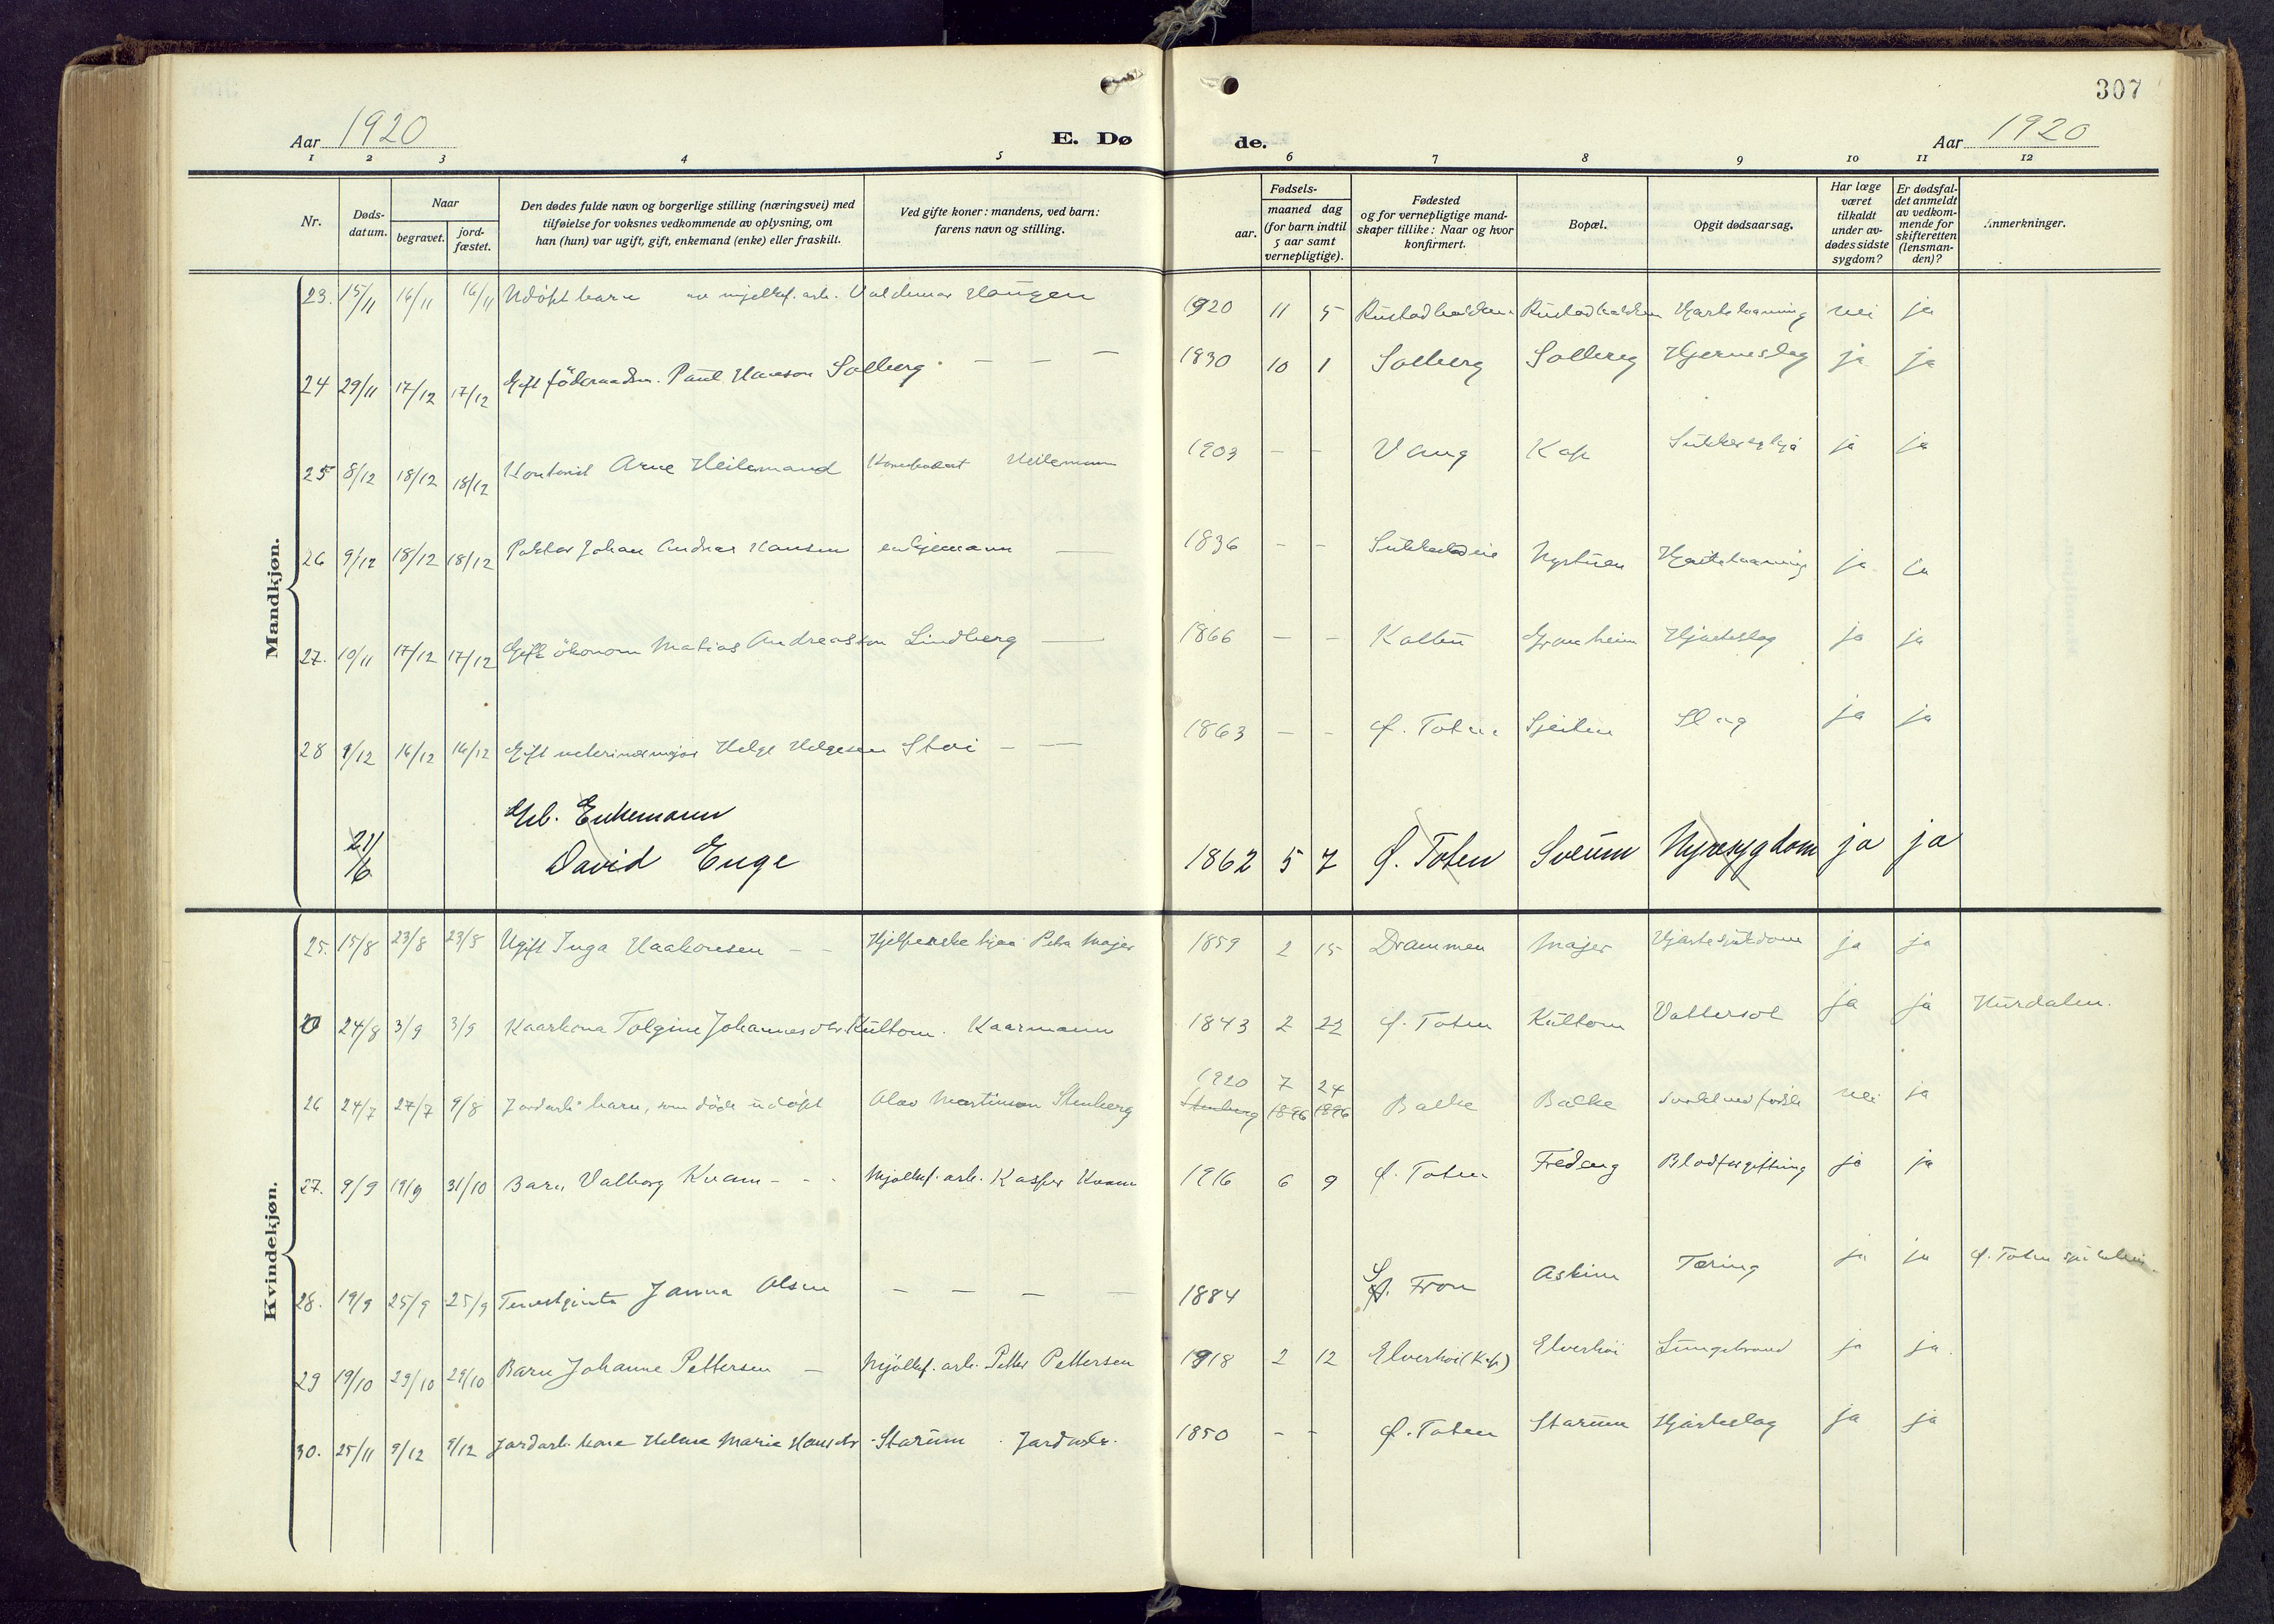 307
Aar 1920
E. Dø de.
Aar 1920
1 2 3 4 5 6 7 8 9 10 11 12
Nr.
Døds-datum.
Naar
begravet.
jord-fæstet.
Den dødes fulde navn og borgerlige stilling (næringsvei) med
tilføielse for voksnes vedkommende av oplysning, om
han (hun) var ugift, gift, enkemand (enke) eller fraskilt.
Ved gifte koner: mandens, ved barn:
farens navn og stilling.
Fødsels-
aar.
maaned dag
(for barn indtil
5 aar samt
vernepligtige).
Fødested
og for vernepligtige mand-
skaper tillike: Naar og hvor
konfirmert.
Bopæl.
Opgit dødsaarsag.
Har læge
været
tilkaldt
under av-
dødes sidste
sygdom?
Er dødsfal-
det anmeldt
av vedkom-
mende for
skifteretten
(lensman-
den)?
Anmerkninger.
Mandkjøn.
23. 15/11 16/11 16/11 Udöpt barn av mjelkef. arb. Valdemar Haugen 1920 11 5 nei ja
24 29/11 17/12 17/12 Gift föderaadsm. Paul Hanson Solberg - - - 1830 10 1 Solberg Solberg Hjerneslag ja ja
25 8/12 18/12 18/12 Kontorist Arne Heilemand 1903 - - Vang Kap ja ja
26 9/12 18/12 18/12 Johan Andreas Hansen enkjemann - 1836 - - Nystuen ja ja
27. 10/11 17/12 17/12 Gift ökonom Matias Andreasson Lindberg - 1866 - - Kolbu Granheim Hjarteslag ja ja
28 9/12 16/12 16/12 Gift veterinærmajor Helge Helgesen Stoi - - 1863 - - Ø. Toten Slag ja ja
21/6 Gb. Enkemann
David Enge 1862 5 7 Ø. Toten Sveum Nyresygdom ja ja
Kvindekjøn.
25. 15/8 23/8 23/8 Ugift Inga Haakonsen - - Petra Majer 1859 2 15 Drammen Majer Hjartesjukdom ja ja
24/8 3/9 3/9 Kaarkona Tolgine Johannesdtr Kultom. Kaarmann 1843 2 22 Ø. Toten Kultom Vattersot ja ja Hurdalen.
26 24/7 27/7 9/8 Jordarb. barn, som döde udöpt Olav Martinson Stenberg 1920 7 24 Stenberg 1896 1896 Balke Balke nei ja
27. 9/9 19/9 31/10 Barn Valborg Kvam - - - Mjölkef. arb. Kasper Kvam 1916 6 9 Ø. Toten Fredeng Blodforgiftning ja ja
28. 19/9 25/9 25/9 Janna Olsen - - - - 1884 S. Fron Askim Tæring ja ja Ø. Toten
29 19/10 29/10 29/10 Barn Johanne Pettersen - Mjölkef. arb. Petter Pettersen 1918 2 12 Elverhöi (Kap) Elverhöi Lungebrand ja ja.
30. 25/11 9/12 9/12 Jordarb. kone Helene Marie Hansdtr - Starum. Jordarb. 1850 - - Ø. Toten Starum Hjarteslag ja ja